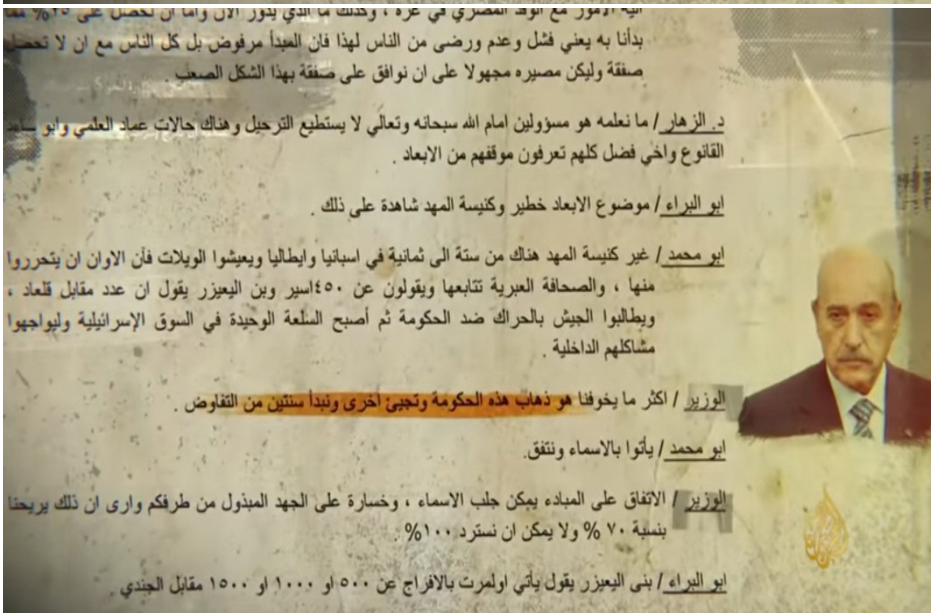 بدأنا به يعني فشل وعدم ورضى من الناس لهذا فان المبدأ مرفوض بل كل الناس مع ان لا تحصل
صفقة وليكن مصيره مجهولا على ان نوافق على صفقة بهذا الشكل الصعب .
د. الزهار / ما نعلمه هو مسؤولين امام الله سبحانه وتعالي لا يستطيع الترحيل وهناك حالات عماد العلمي وابو
القانوع واخي فضل كلهم تعرفون موقفهم من الابعاد .
ابو البراء / موضوع الابعاد خطير وكنيسة المهد شاهدة على ذلك .
ابو محمد / غير كنيسة المهد هناك من ستة الى ثمانية في اسبانيا وايطاليا ويعيشوا الويلات فآن الاوان ان يتحرروا
منها ، والصحافة العبرية تتابعها ويقولون عن ٤٥٠اسير وبن اليعيزر يقول ان عدد مقابل قلعاد ،
ويطالبوا الجيش بالحراك ضد الحكومة ثم أصبح السلعة الوحيدة في السوق الإسرائيلية وليواجهوا
مشاكلهم الداخلية .
الوزير / اكثر ما يخوفنا هو ذهاب هذه الحكومة وتجيئ أخرى ونبدأ سنتين من التفاوض .
ابو محمد / يأتوا بالاسماء ونتفق.
الوزير / الاتفاق على المبادء يمكن جلب الاسماء ، وخسارة على الجهد المبذول من طرفكم وارى ان ذلك يريحنا
بنسبة ٧٠ % ولا يمكن ان نسترد ١٠٠% .
ابو البراء / بنى اليعيزر يقول يأتي اولمرت بالافراج عن ٥٠٠ او ١٠٠٠ او ١٥٠٠ مقابل الجندي .